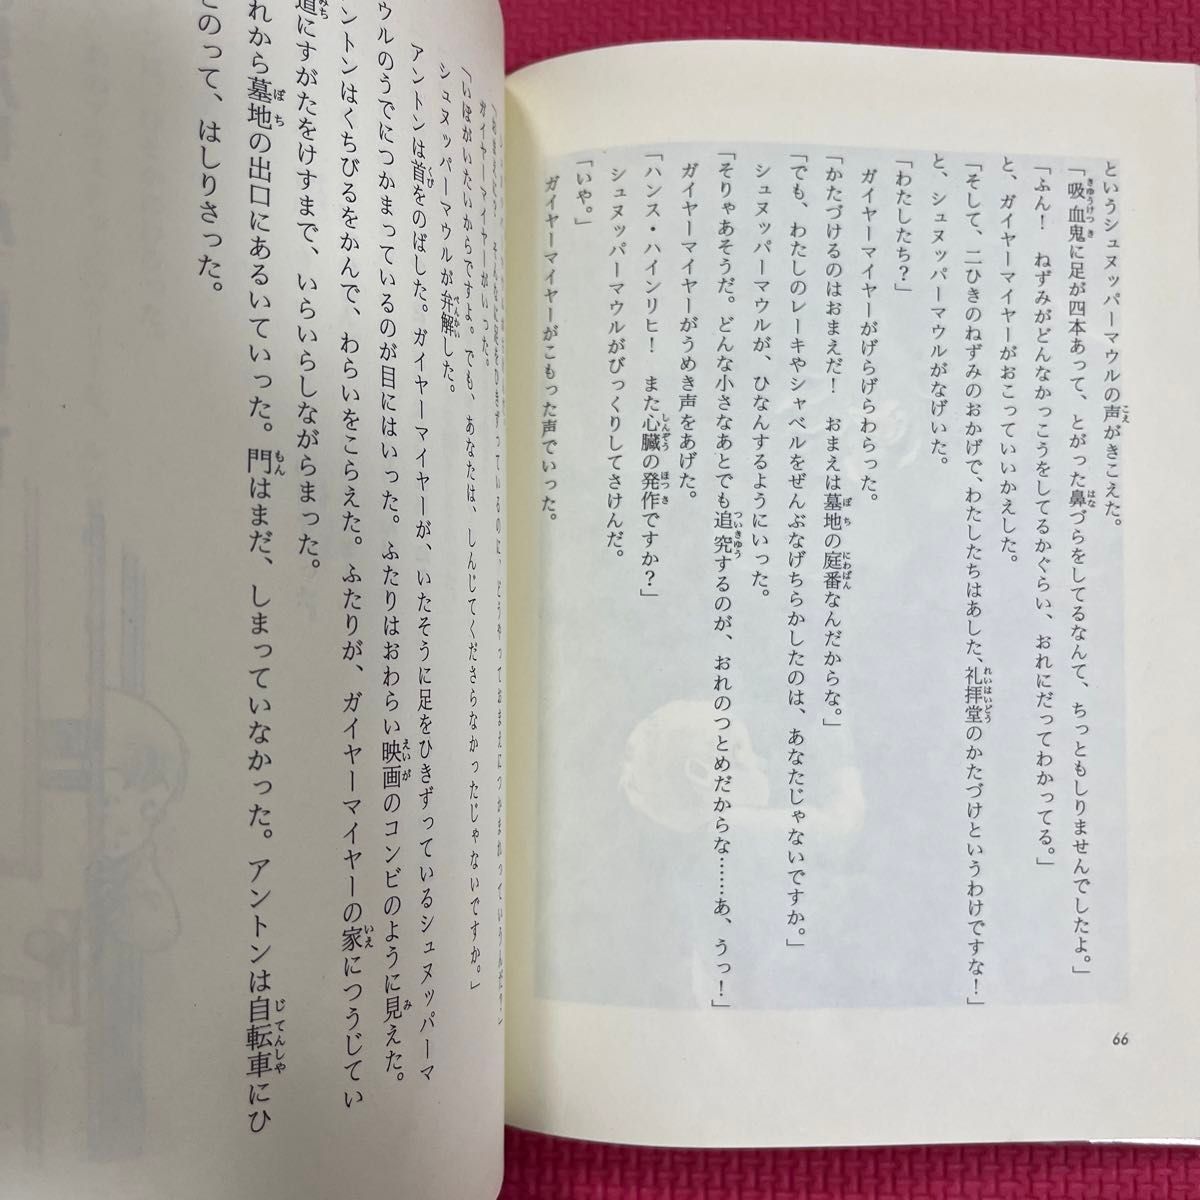 というシュヌッパーマウルの声がきこえた。
「吸血鬼に足が四本あって、とがった鼻づらをしてるなんて、ちっともしりませんでしたよ。」
「ふん！　ねずみがどんなかっこうをしてるかぐらい、おれにだってわかってる。」
と、ガイヤーマイヤーがおこっていいかえした。
「そして、二ひきのねずみのおかげで、わたしたちはあした、礼拝堂のかたづけというわけですな！」
と、シュヌッパーマウルがなげいた。
「わたしたち？」
ガイヤーマイヤーがげらげらわらった。
「かたづけるのはおまえだ！　おまえは墓地の庭番なんだからな。」
「でも、わたしのレーキやシャベルをぜんぶなげちらかしたのは、あなたじゃないですか。」
シュヌッパーマウルが、ひなんするようにいった。
「そりゃあそうだ。どんな小さなあとでも追究するのが、おれのつとめだからな……あ、うっ！」
ガイヤーマイヤーがうめき声をあげた。
「ハンス・ハインリヒ！　また心臓の発作ですか？」
シュヌッパーマウルがびっくりしてさけんだ。
「いや。」
ガイヤーマイヤーがこもった声でいった。
66
「おまえ、そんなに足をひきずっているのに、どうやっておまえにつかまれっていうんだ？」
ガイヤーマイヤーがいった。
「いぼがいたいからですよ。でも、あなたは、しんじてくださらなかったじゃないですか。」
シュヌッパーマウルが弁解した。
アントンは首をのばした。ガイヤーマイヤーが、いたそうに足をひきずっているシュヌッパーマ
ウルのうでにつかまっているのが目にはいった。ふたりはおわらい映画のコンビのように見えた。
ントンはくちびるをかんで、わらいをこらえた。ふたりが、ガイヤーマイヤーの家につうじてい
道にすがたをけすまで、いらいらしながらまった。
れから墓地の出口にあるいていった。門はまだ、しまっていなかった。アントンは自転車にひ
とのって、はしりさった。